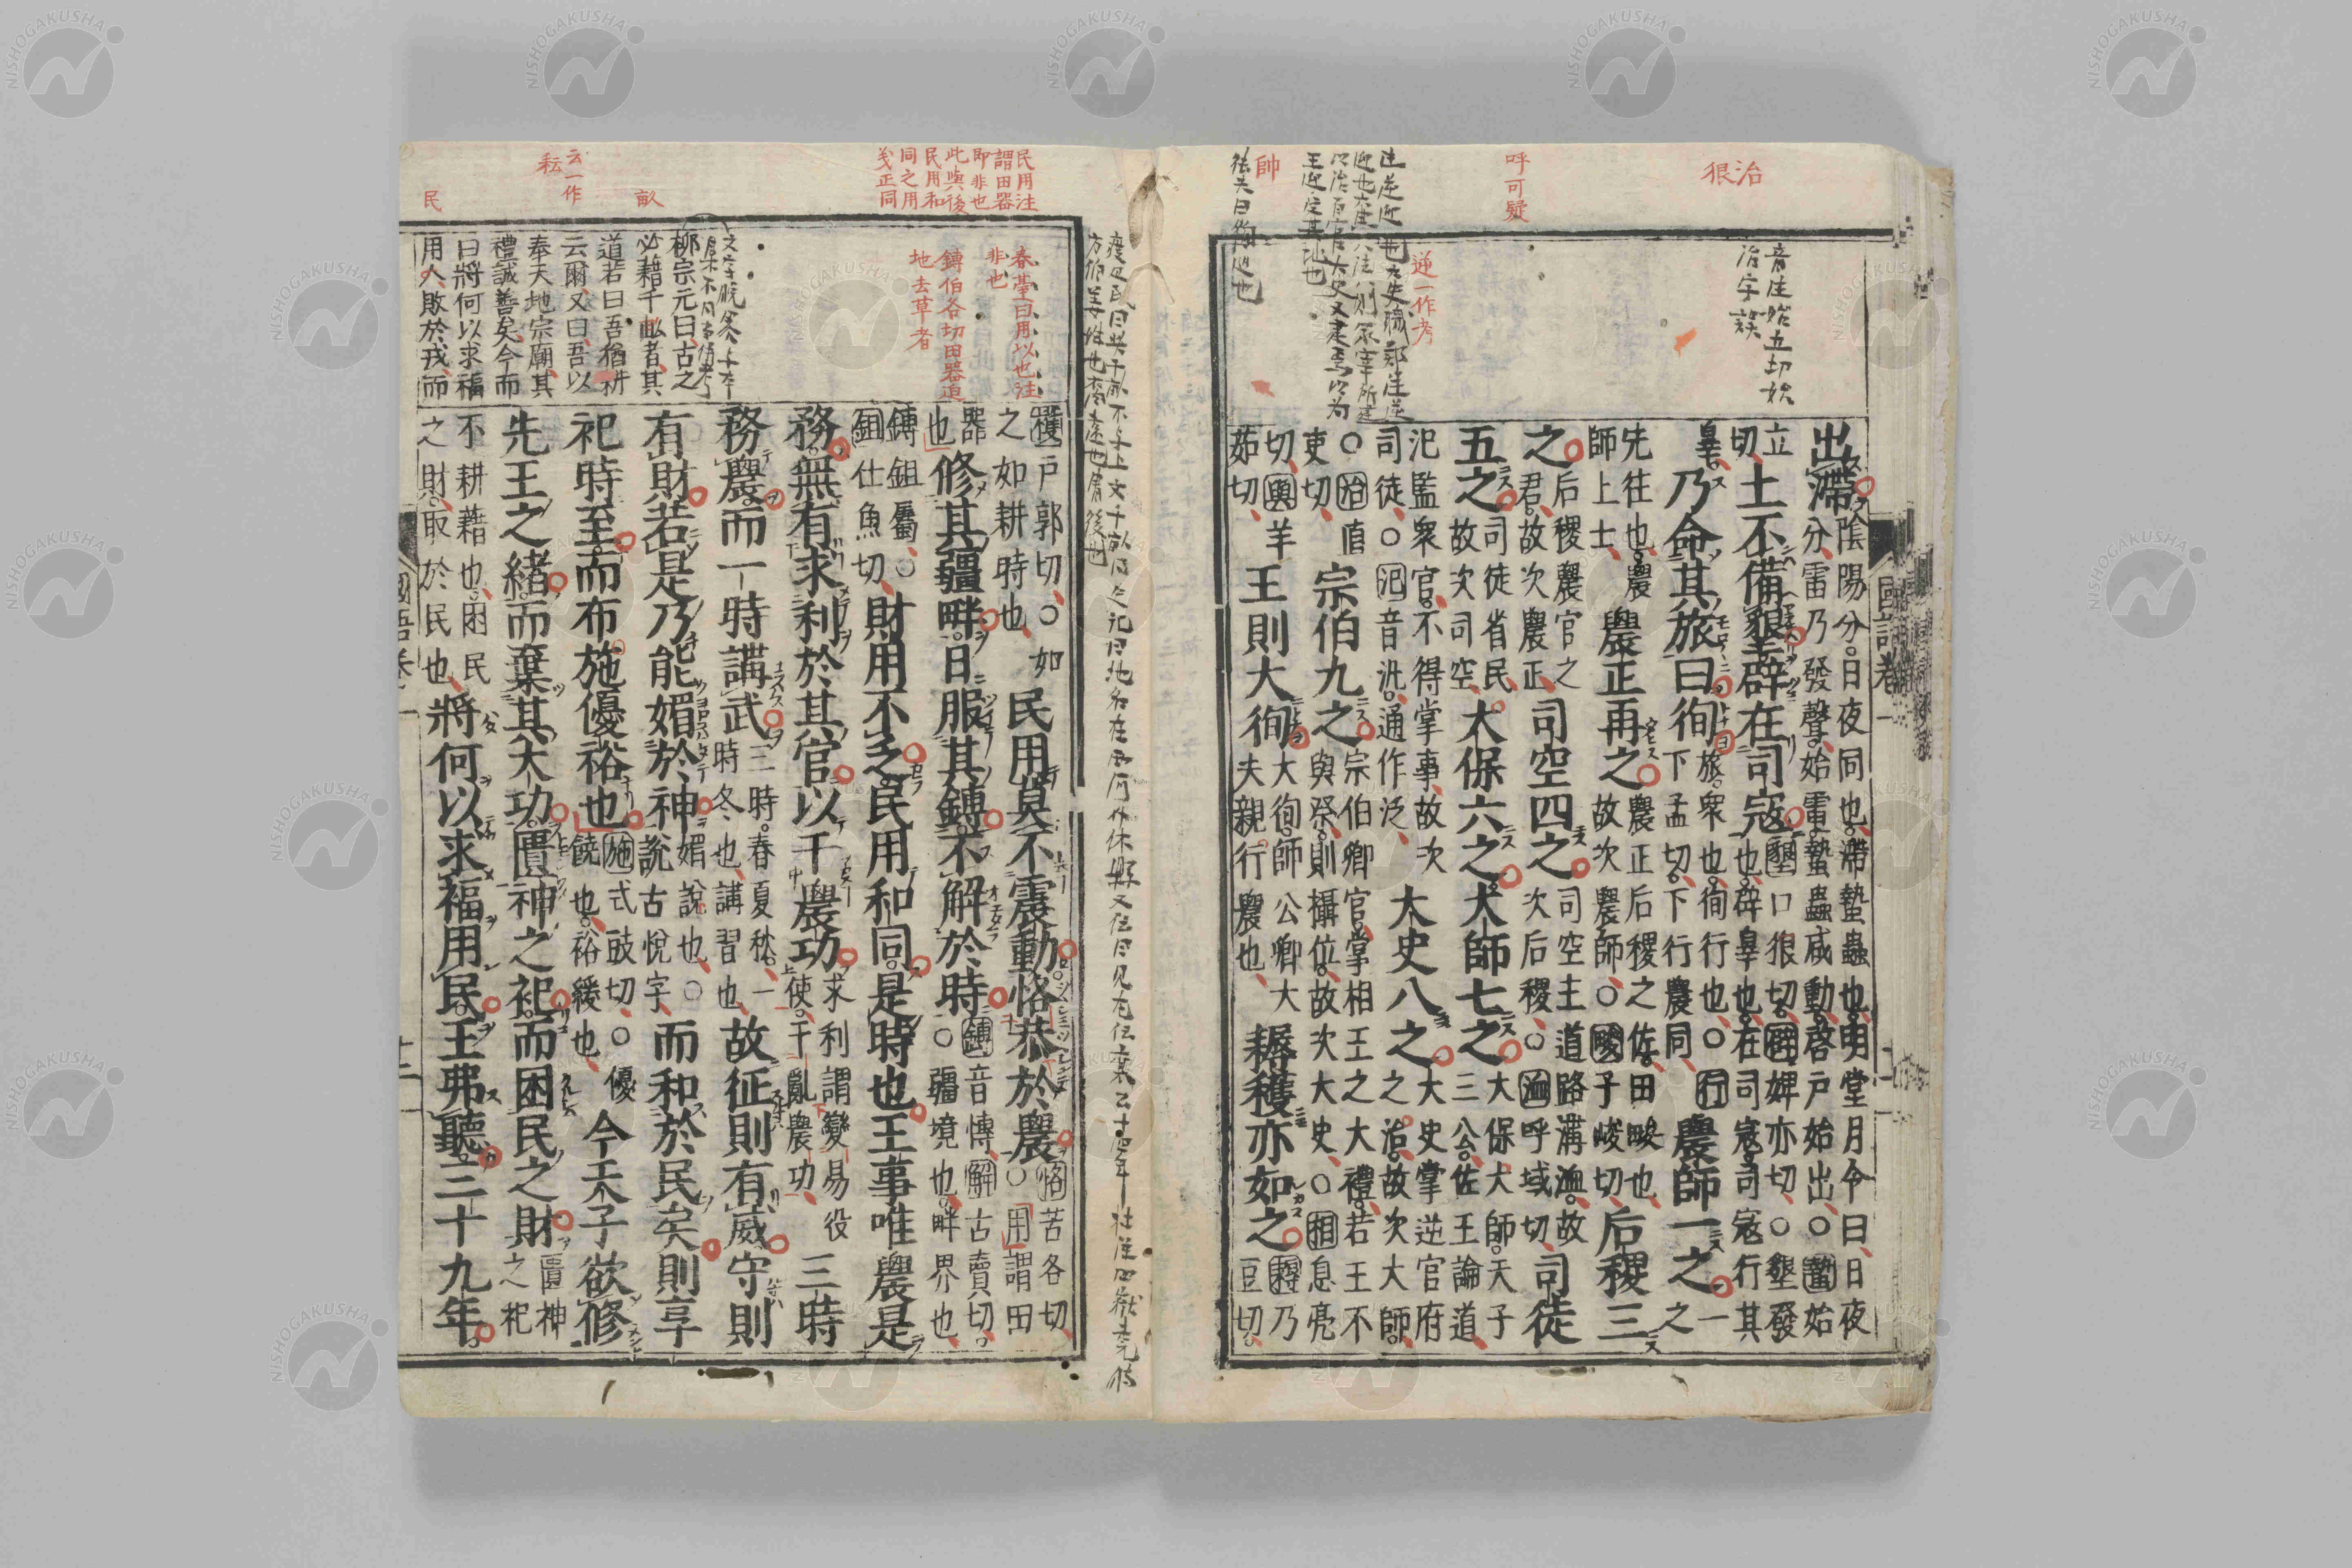 治
狠
呼可疑
帥
音注始五切始
治字誤
逆一作考
國語卷一
出滯陰陽分。日夜同也。滯蟄蟲也。明堂月令曰、日夜
分、雷乃發聲、始電、蟄蟲咸動、啓戶始出、○蟄始
立切、土不備墾辟在司寇墾口狠切。闢婢亦切、○墾發
也、辟辠也。在司寇、司寇行其
辠。乃命其旅曰徇旅。衆也、徇行也、○行
下孟切。下行農同、農師一之一
之
先往也。農
師上士、農正再之農正后稷之佐、田畯也、
故次農師、○畯子峻切、后稷三
之后稷農官之
君、故次農正、司空四之司空主道路溝洫。故
次后稷、○洫呼域切、司徒
五之司徒省民、
故次司空、太保六之。太師七之大保大師。天子
三公。佐王論道、
氾監衆官。不得掌事、故次
司徒、○氾音汎。通作泛、太史八之大史掌逆官府
之治。故次大師。
○治直
吏切、宗伯九之宗伯卿官、掌相王之大禮。若王不
與祭、則攝位。故次大史、○相息亮
切、與羊
茹切、王則大徇大徇。師公卿大
夫親。行農也、耨穫亦如之耨乃
豆切。
民用注
謂田器
即非也
此與後
民用和
同之用
義正同
春臺曰用以也注
非也
鎛伯各切田器迫
地去草者
畝
云一作
耘
民
柳宗元曰、古之
必藉千畝者、其
道若曰吾猶耕
云爾、又曰、吾以
奉天地宗廟、其
禮誠善矣、今而
曰將何以求福
用人、敗於戎、而
穫戶郭切、○如
之如耕時也、民用莫不震動恪恭於農恪苦各切、
○用謂田
器
也修其疆畔。日服其鎛。不解於時鎛音博、解古賣切。
○疆境也、畔界也、
鎛鉏屬、○
鉏仕魚切、財用不乏。民用和同。是時也王事唯農是
務。無有求利於其官以干農功求利謂變易役
使。干亂農功、三時
務農。而一時講武三時。春夏秋。一
時冬也、講習也、故征則有威守則
有財。若是乃能媚於神媚說也、○
說古悅字、而和於民矣則享
祀時至而布施優裕也施式豉切、○優
饒也。裕緩也、今天子欲修
先王之緒而棄其大功。匱神之祀。而困民之財匱神
之祀
不耕藉也、困民
之財。取於民也、將何以求福用民。王弗聽。三十九年。
NISHOGAKUSHA